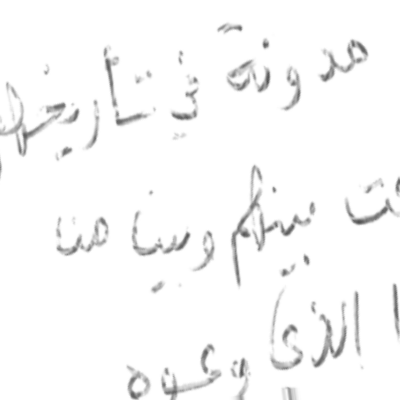 مدونة في تأريخها
بينهم وبينا هنا
الذي وعوه